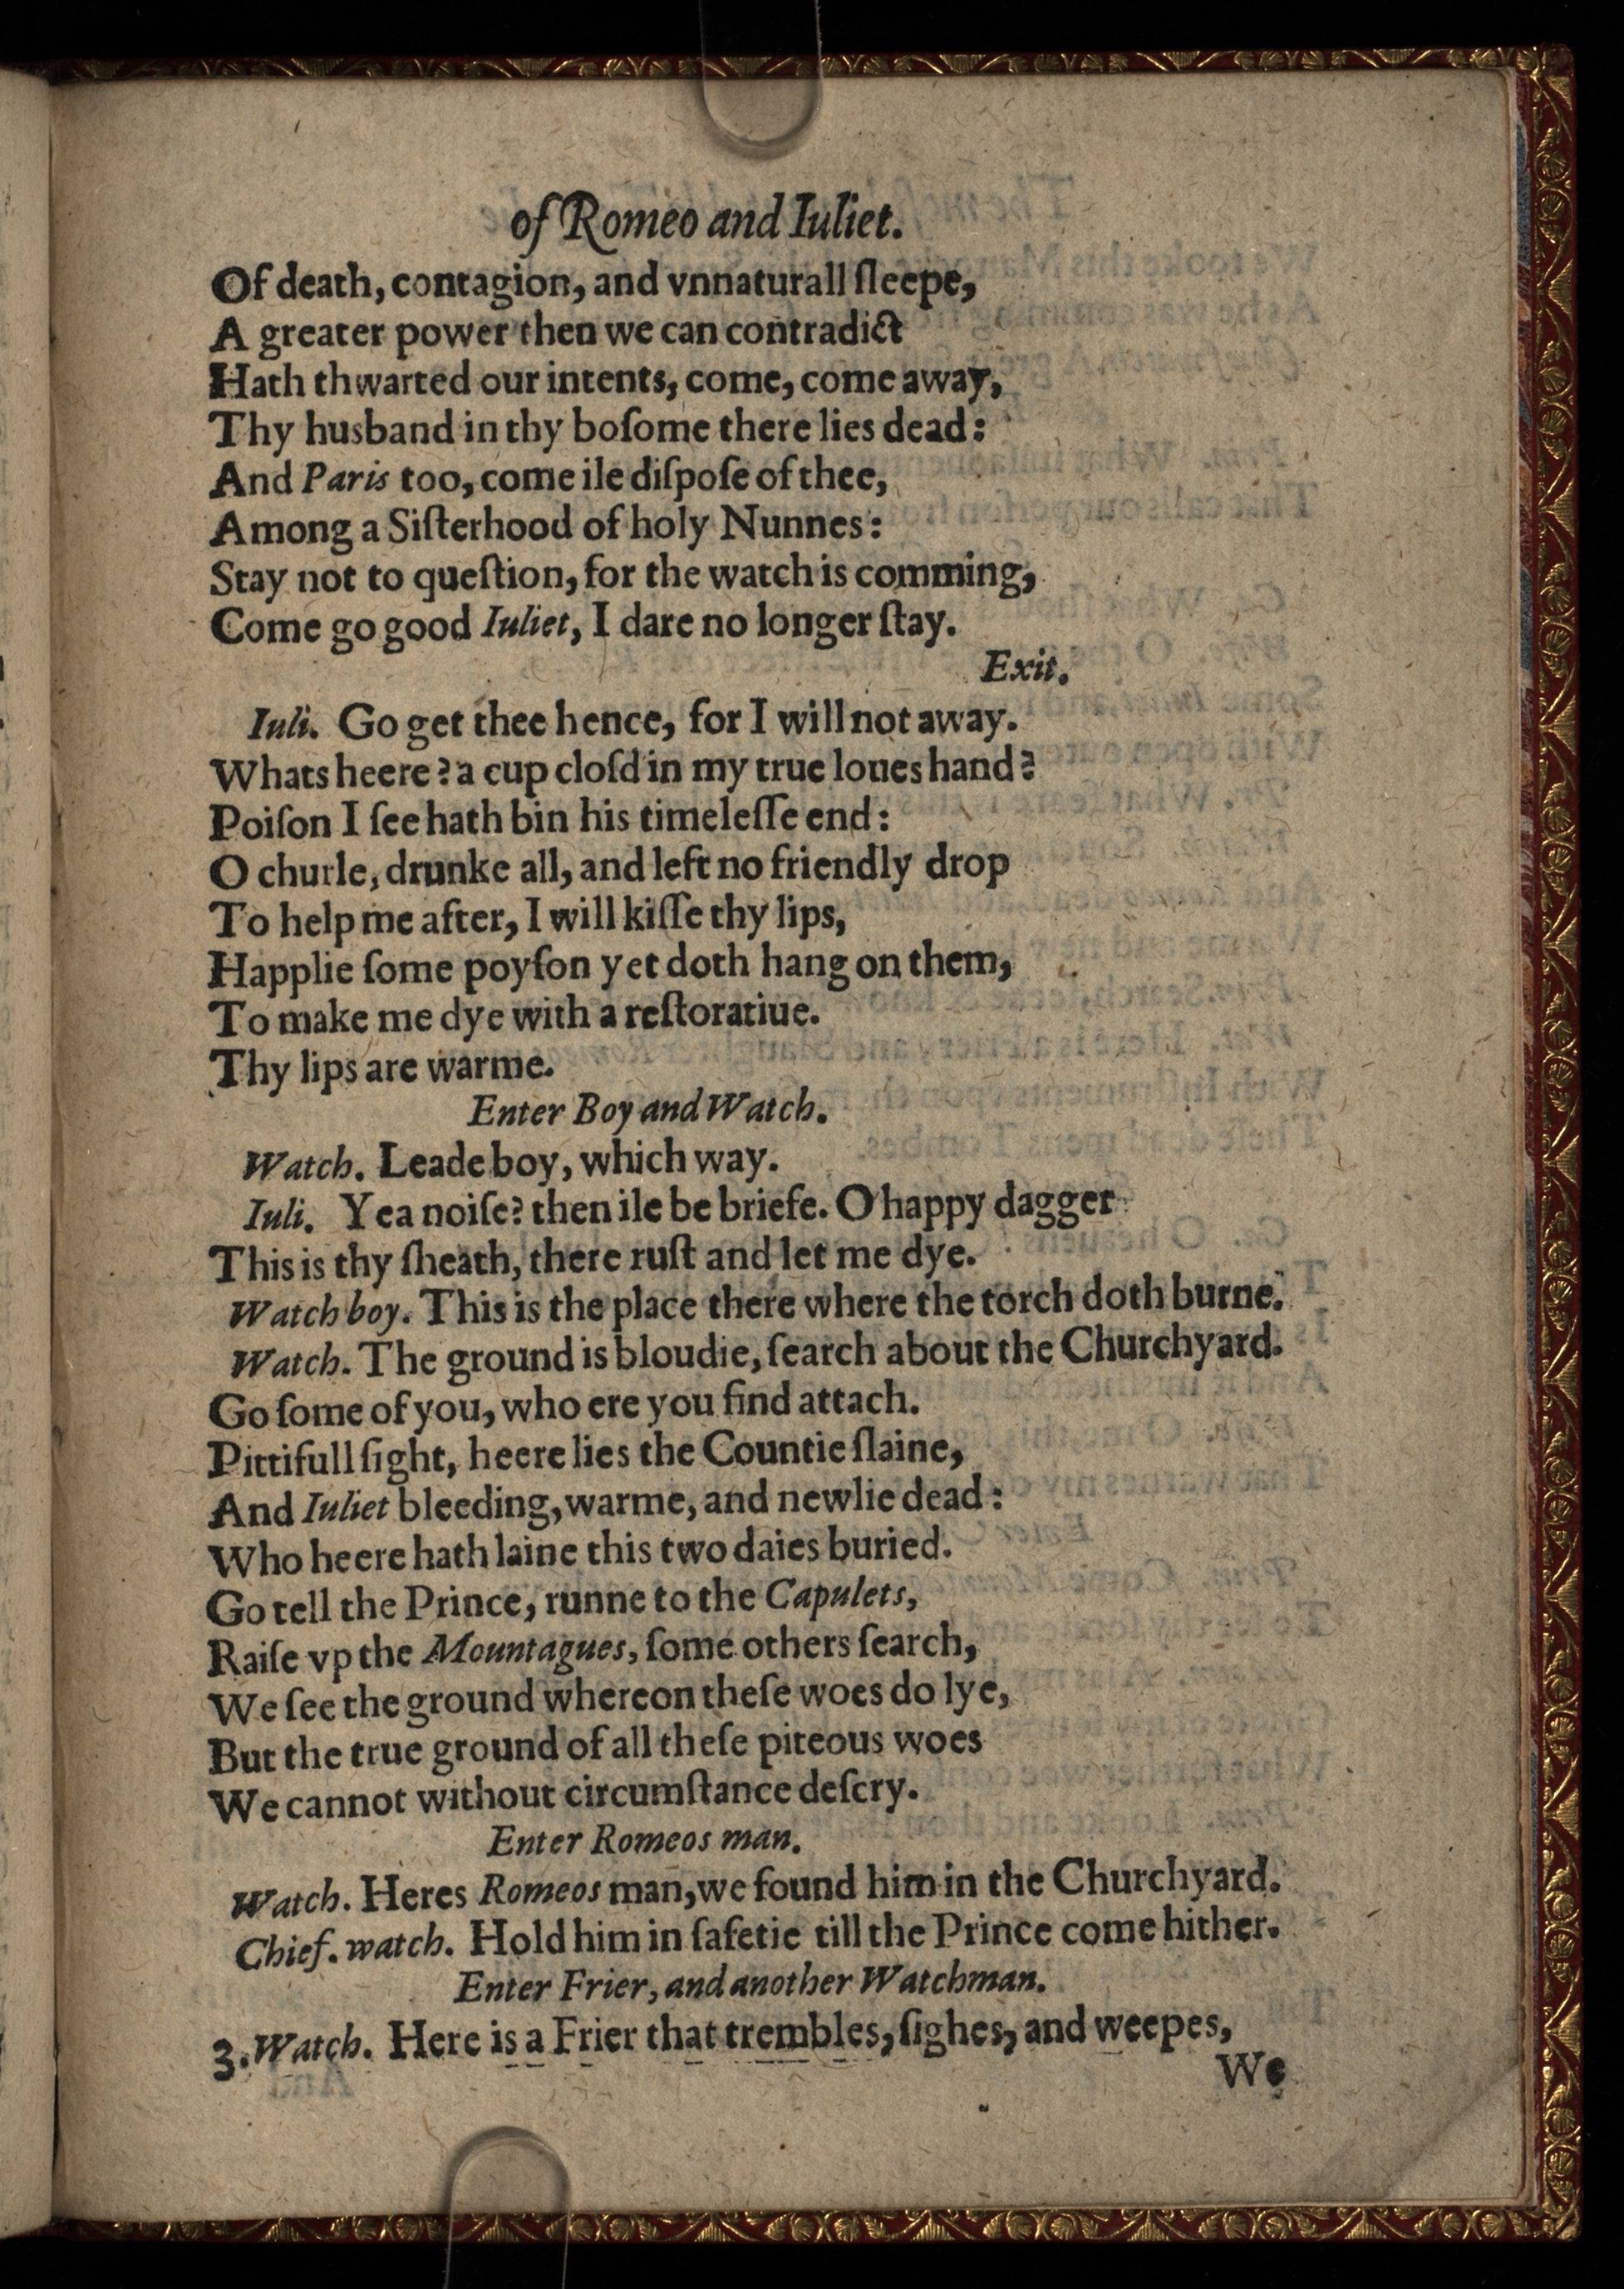 of Romeo and Iuliet.
Of death, contagion, and vnnaturall ſleepe,
A greater power then we can contradict
Hath thwarted our intents, come, come away,
Thy husband in thy boſome there lies dead:
And Paris too, come ile diſpoſe of thee,
Among a Siſterhood of holy Nunnes:
Stay not to queſtion, for the watch is comming,
Come go good Iuliet, I dare no longer ſtay.
Exit.
Iuli. Go get thee hence, for I will not away.
Whats heere? a cup cloſd in my true loues hand?
Poiſon I ſee hath bin his timeleſſe end:
O churle, drunke all, and left no friendly drop
To help me after, I will kiſſe thy lips,
Happlie ſome poyſon yet doth hang on them,
To make me dye with a reſtoratiue.
Thy lips are warme.
Enter Boy and Watch.
Watch. Leade boy, which way.
Iuli. Yea noiſe? then ile be briefe. O happy dagger
This is thy ſheath, there ruſt and let me dye.
Watch boy. This is the place there where the torch doth burne.
Watch. The ground is bloudie, ſearch about the Churchyard.
Go ſome of you, who ere you find attach.
Pittifull ſight, heere lies the Countie ſlaine,
And Iuliet bleeding, warme, and newlie dead:
Who heere hath laine this two daies buried.
Go tell the Prince, runne to the Capulets,
Raiſe vp the Mountagues, ſome others ſearch,
We ſee the ground whereon theſe woes do lye,
But the true ground of all theſe piteous woes
We cannot without circumſtance deſcry.
Enter Romeos man.
Watch. Heres Romeos man, we found him in the Churchyard.
Chief. watch. Hold him in ſafetie till the Prince come hither.
Enter Frier, and another Watchman.
3. Watch. Here is a Frier that trembles, ſighes, and weepes,
We